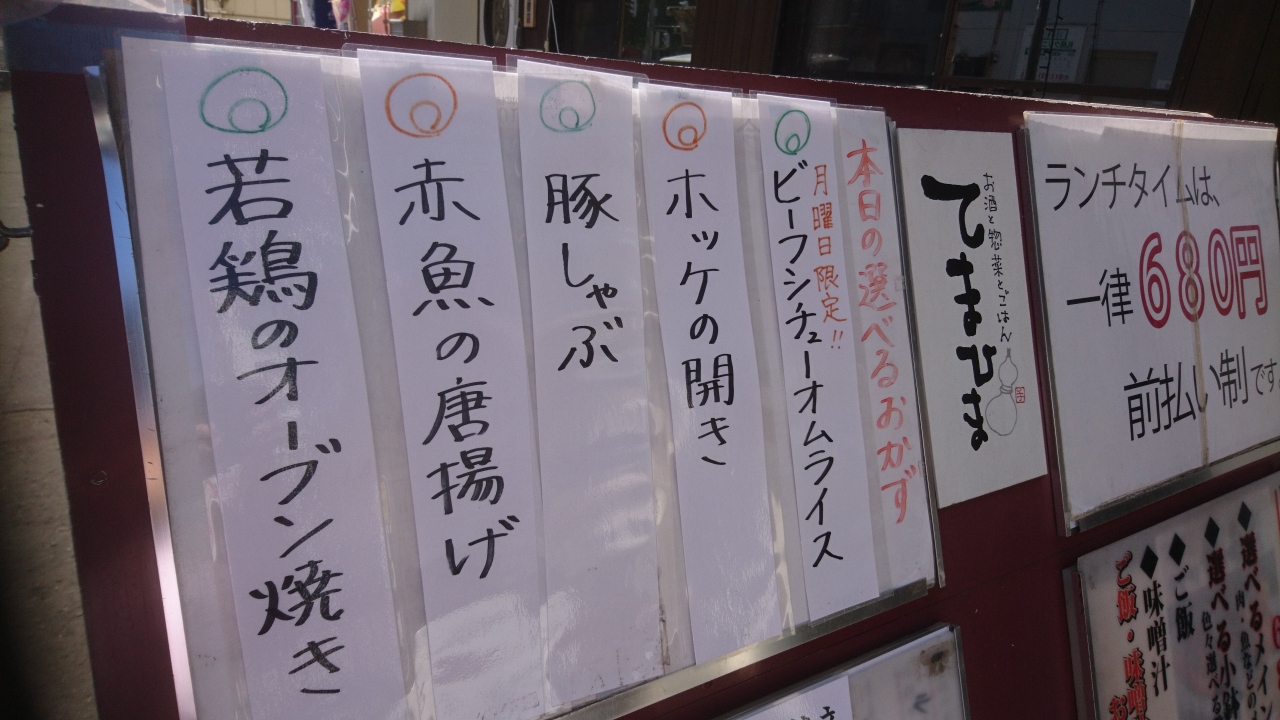 ランチタイムは、
一律680円
前払い制です
お酒と惣菜とごはん
てまひま
本日の選べるおかず
月曜日限定!!
ビーフシチューオムライス
ホッケの開き
豚しゃぶ
赤魚の唐揚げ
若鶏のオーブン焼き
◆選べるメイン
肉・魚などの
◆選べる小鉢
色々選べる
◆ご飯
◆味噌汁
ご飯・味噌